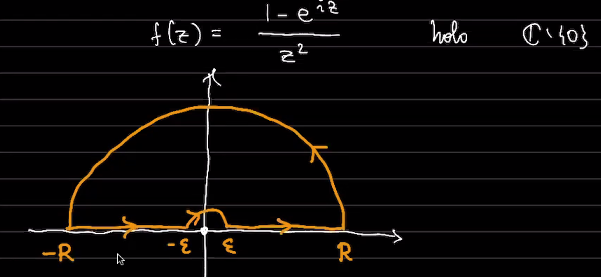 f(z) = (1 - e^{iz}) / z^2 holo ℂ\{0}
-R -ε ε R